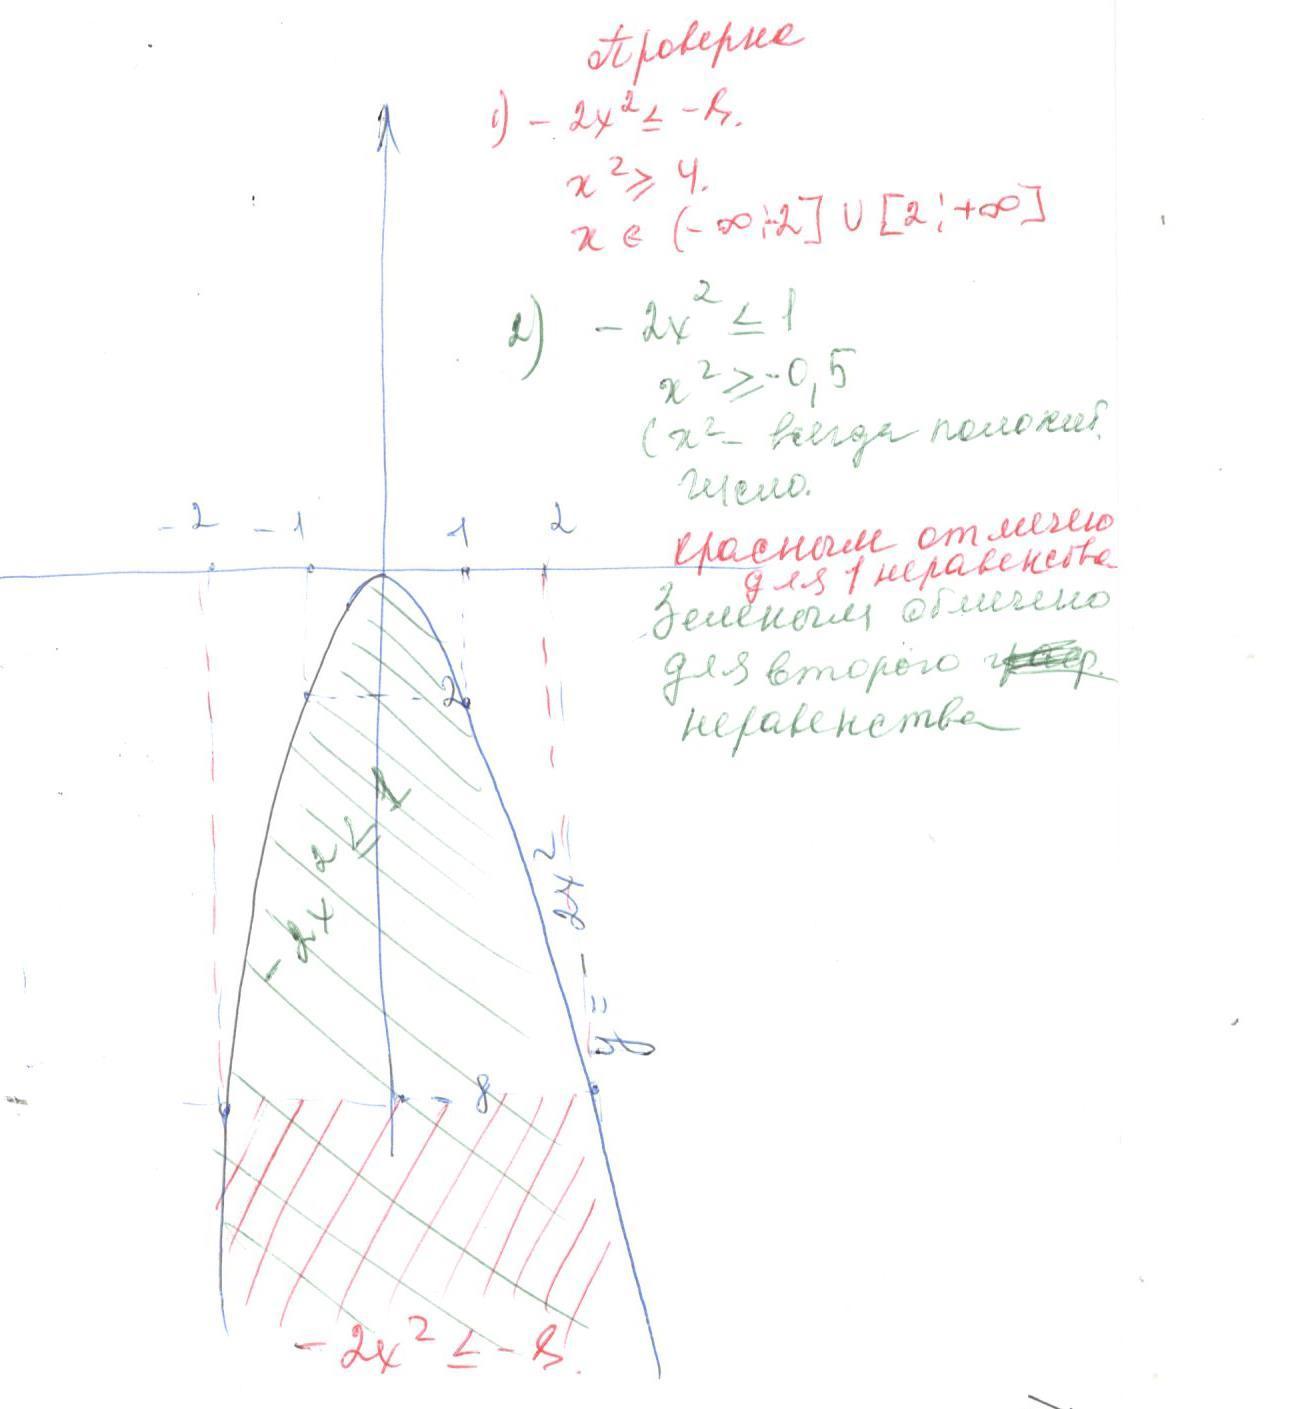 Проверка
1) - 2x² ≤ -8.
x² ≥ 4.
x ∈ (-∞;-2] ∪ [2;+∞]
2) - 2x² ≤ 1
x² ≥ -0,5
(x² - всегда положит.
число.
-2 -1 1 2
красным отмечено
для 1 неравенства
Зеленым отмечено
для второго
неравенства
2
-2x² ≤ 1
y = -2x²
- 8
- 2x² ≤ -8.